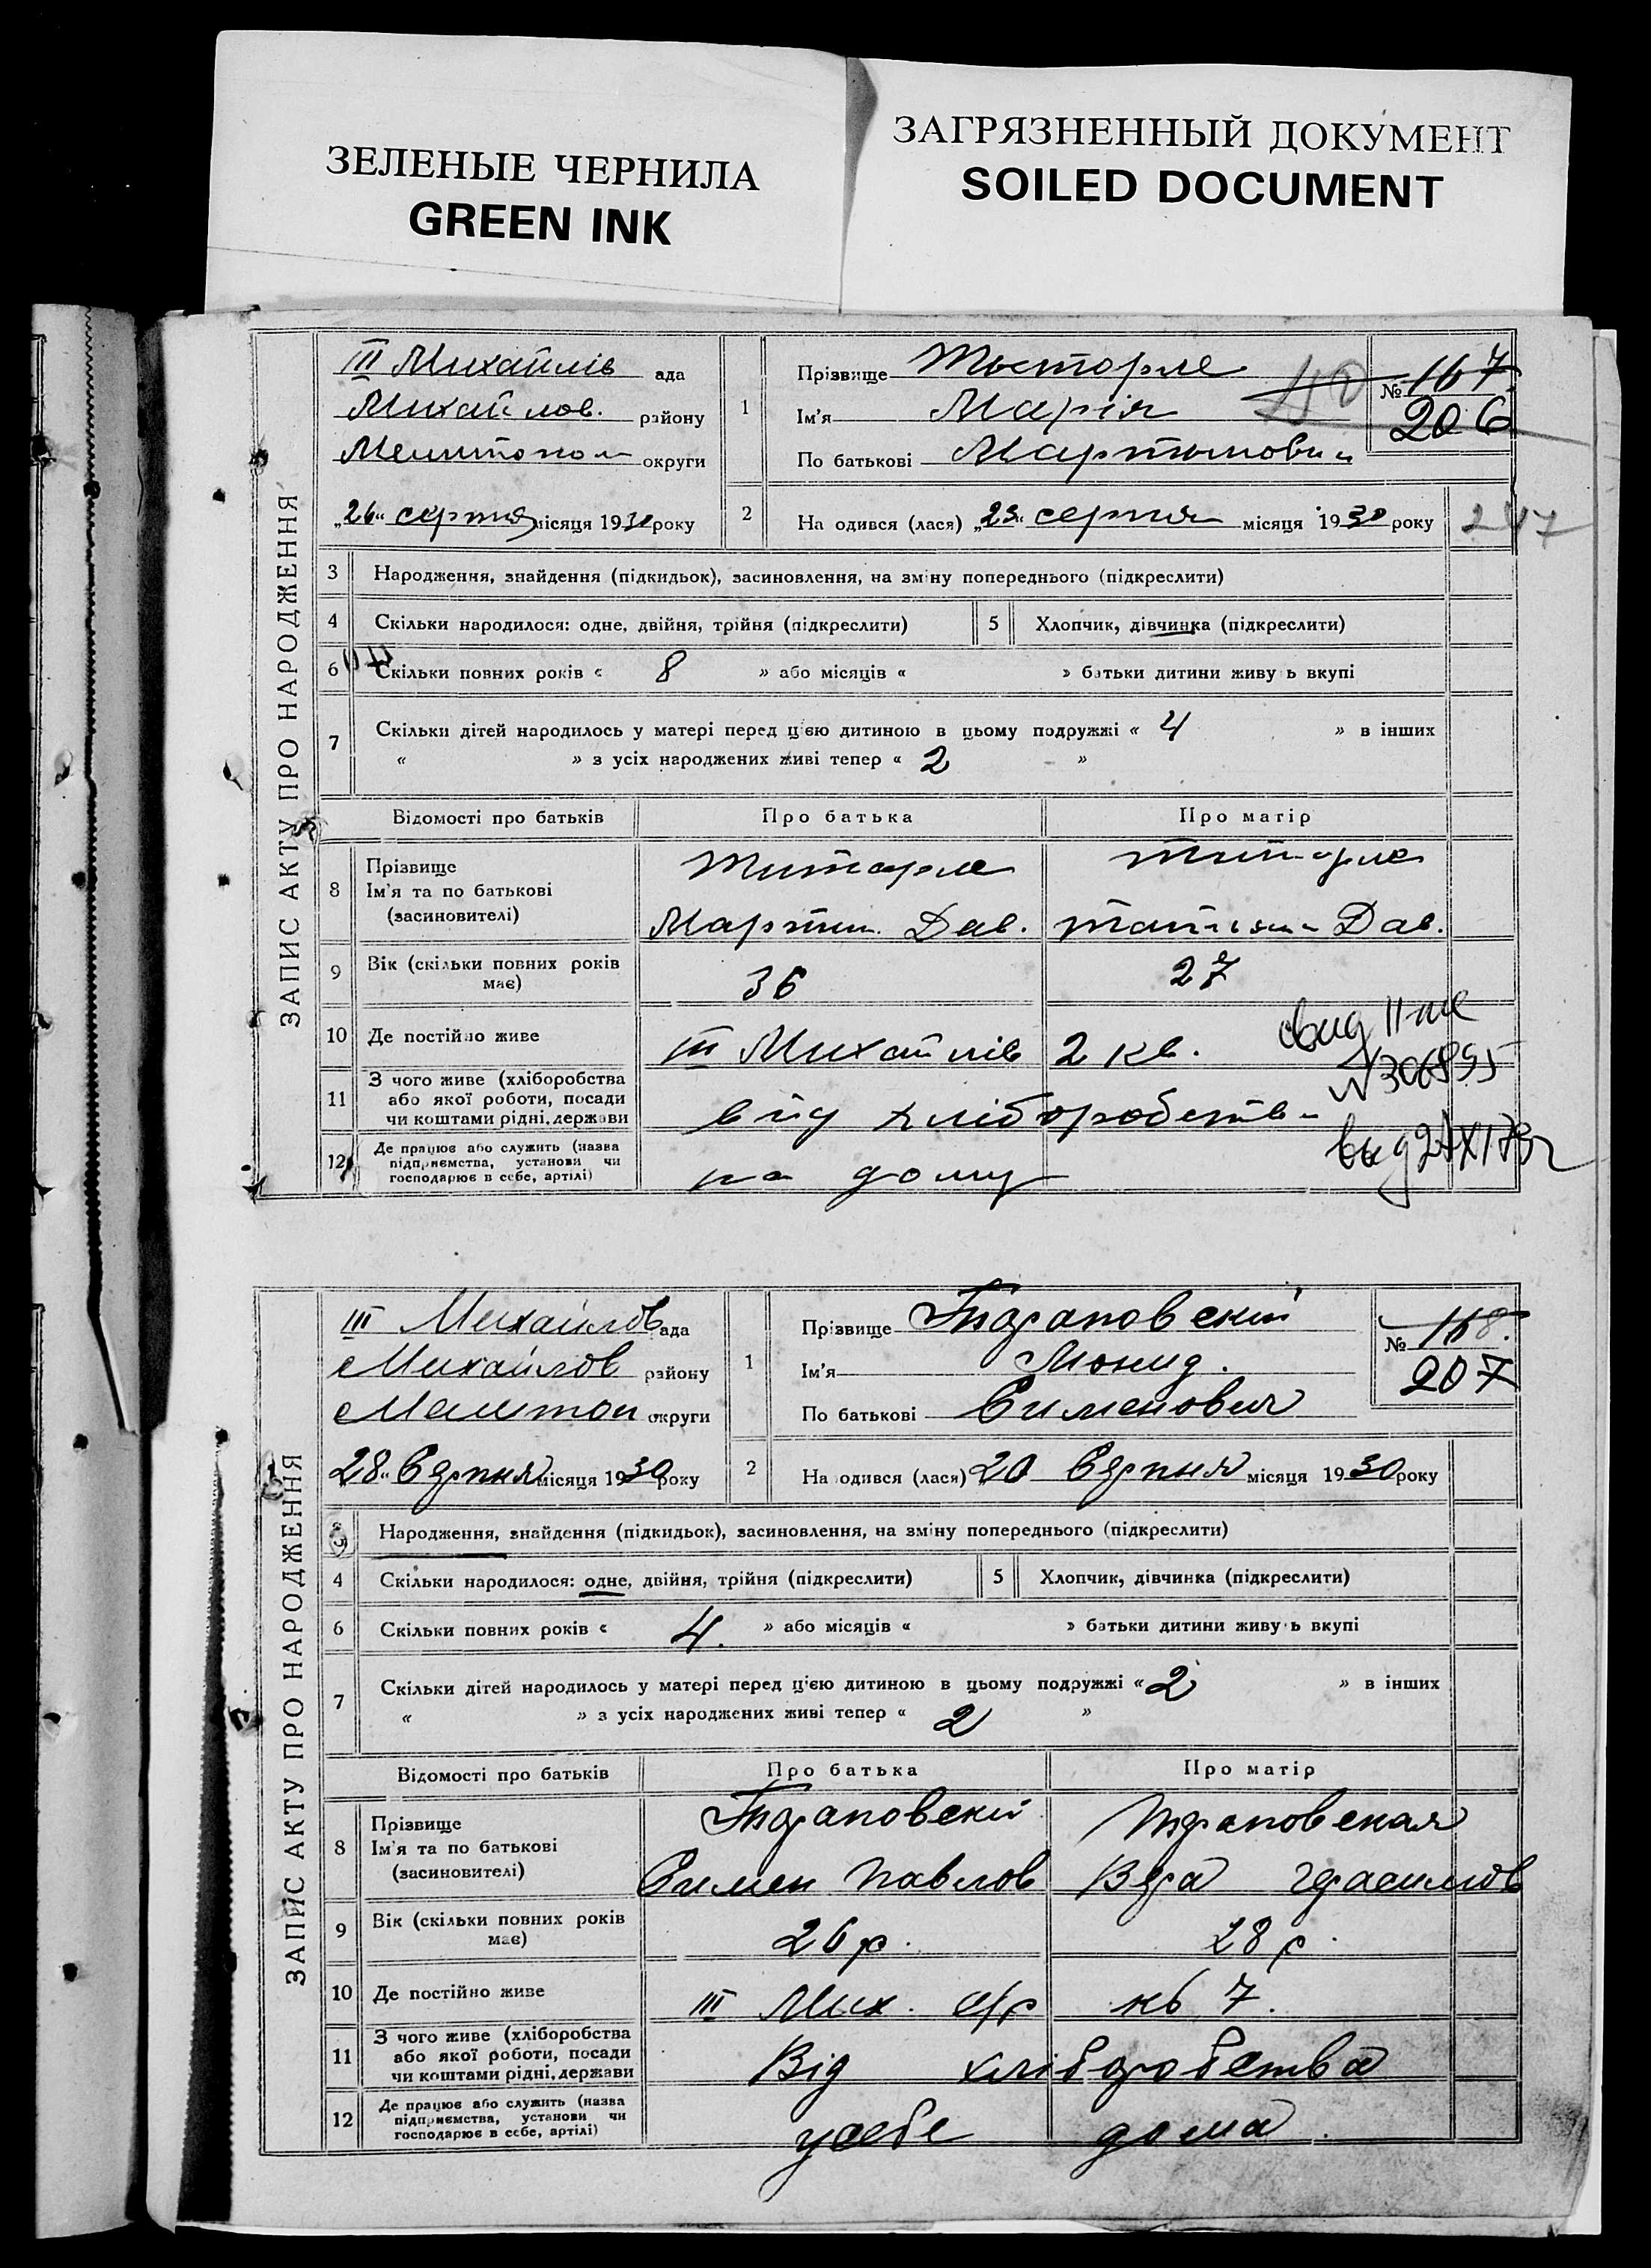 ЗЕЛЕНЫЕ ЧЕРНИЛА
GREEN INK
ЗАГРЯЗНЕННЫЙ ДОКУМЕНТ
SOILED DOCUMENT
ЗАПИС АКТУ ПРО НАРОДЖЕННЯ
III Михайлів ада
Михайлов. району
округи
„26“ серпня місяця 1930 року
1
Прізвище
Ім'я Марія
По батькові
40
№ 167
206
2
На одився (лася) „23“ серпня місяця 1930 року
247
3 Народження, знайдення (підкидьок), засиновлення, на зміну попереднього (підкреслити)
4 Скільки народилося: одне, двійня, трійня (підкреслити)
5 Хлопчик, дівчинка (підкреслити)
6 Скільки повних років « 8 » або місяців « » батьки дитини живу ь вкупі
7 Скільки дітей народилось у матері перед ц'єю дитиною в цьому подружжі « 4 » в інших
« » з усіх народжених живі тепер « 2 »
Відомості про батьків Про батька Про матір
8 Прізвище
Ім'я та по батькові
(засиновителі)
Мартин. Дав. Дав.
9 Вік (скільки повних років
має)
36 27
10 Де постійно живе III Михайлів 2 кв.
11 З чого живе (хліборобства
або якої роботи, посади
чи коштами рідні, держави
від хліборобств
12 Де працює або служить (назва
підприємства, установи чи
господарює в себе, артілі)
на дому
ЗАПИС АКТУ ПРО НАРОДЖЕННЯ
III Михайлов ада
Михайлов району
округи
28 Серпня місяця 1930 року
1
Прізвище
Ім'я
По батькові
№ 168.
207
2
На одився (лася) „20 Серпня місяця 1930 року
3 Народження, знайдення (підкидьок), засиновлення, на зміну попереднього (підкреслити)
4 Скільки народилося: одне, двійня, трійня (підкреслити)
5 Хлопчик, дівчинка (підкреслити)
6 Скільки повних років « 4. » або місяців « » батьки дитини живу ь вкупі
7 Скільки дітей народилось у матері перед ц'єю дитиною в цьому подружжі « 2 » в інших
« » з усіх народжених живі тепер « 2 »
Відомості про батьків Про батька Про матір
8 Прізвище
Ім'я та по батькові
(засиновителі)
Павлов Вера
9 Вік (скільки повних років
має)
26 р. 28 р.
10 Де постійно живе III Мих. с/р кв 7.
11 З чого живе (хліборобства
або якої роботи, посади
чи коштами рідні, держави
Від хліборобства
12 Де працює або служить (назва
підприємства, установи чи
господарює в себе, артілі)
усебе дома.